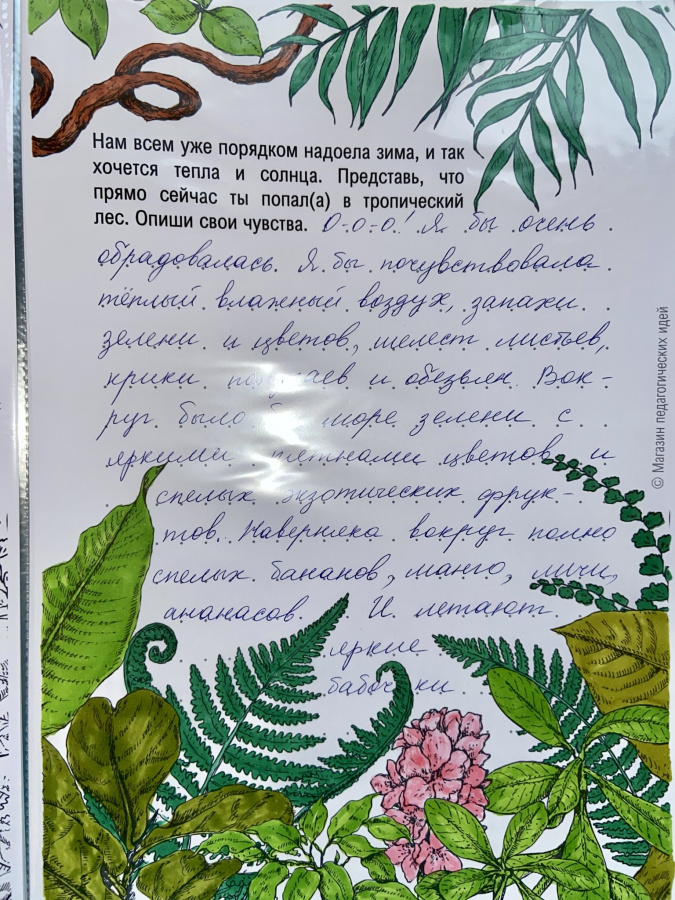 Нам всем уже порядком надоела зима, и так
хочется тепла и солнца. Представь, что
прямо сейчас ты попал(а) в тропический
лес. Опиши свои чувства. О-о-о! Я бы очень
обрадовалась. Я бы почувствовала
тёплый влажный воздух, запахи
зелени и цветов, шелест листьев,
крики попугаев и обезьян. Вок-
руг было бы море зелени с
яркими пятнами цветов и
спелых экзотических фрук-
тов. Наверняка вокруг полно
спелых бананов, манго, личи,
ананасов. И летают
яркие
бабочки
© Магазин педагогических идей